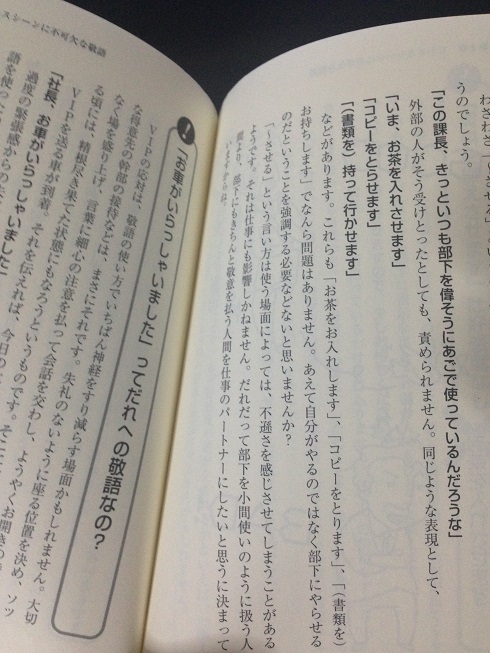 わざわざ「〜させる」とい
うのでしょう。
「この課長、きっといつも部下を偉そうにあごで使っているんだろうな」
外部の人がそう受けとったとしても、責められません。同じような表現として、
「いま、お茶を入れさせます」
「コピーをとらせます」
「(書類を)持って行かせます」
などがあります。これらも「お茶をお入れします」、「コピーをとります」、「(書類を)
お持ちします」でなんら問題はありません。あえて自分がやるのではなく部下にやらせる
のだということを強調する必要などないと思いませんか?
「〜させる」という言い方は使う場面によっては、不遜さを感じさせてしまうことがある
ようです。それは仕事にも影響しかねません。だれだって部下を小間使いのように扱う人
間より、部下にもきちんと敬意を払う人間を仕事のパートナーにしたいと思うに決まって
いますからね。
スシーンに不可欠な敬語
「お車がいらっしゃいました」ってだれへの敬語なの?
VIPの応対は、敬語の使い方でいちばん神経をすり減らす場面かもしれません。大切
な得意先の幹部の接待などは、まさにそれです。失礼のないように座る位置を決め、ソツ
なく場を盛り上げ、言葉に細心の注意を払って会話を交わし、ようやくお開きの
る頃には、精根尽き果てた状態にもなろうというものです。
VIPを送る車が到着。それを伝えれば、今日の
「社長、お車がいらっしゃいました」
過度の緊張感からの
語を使った